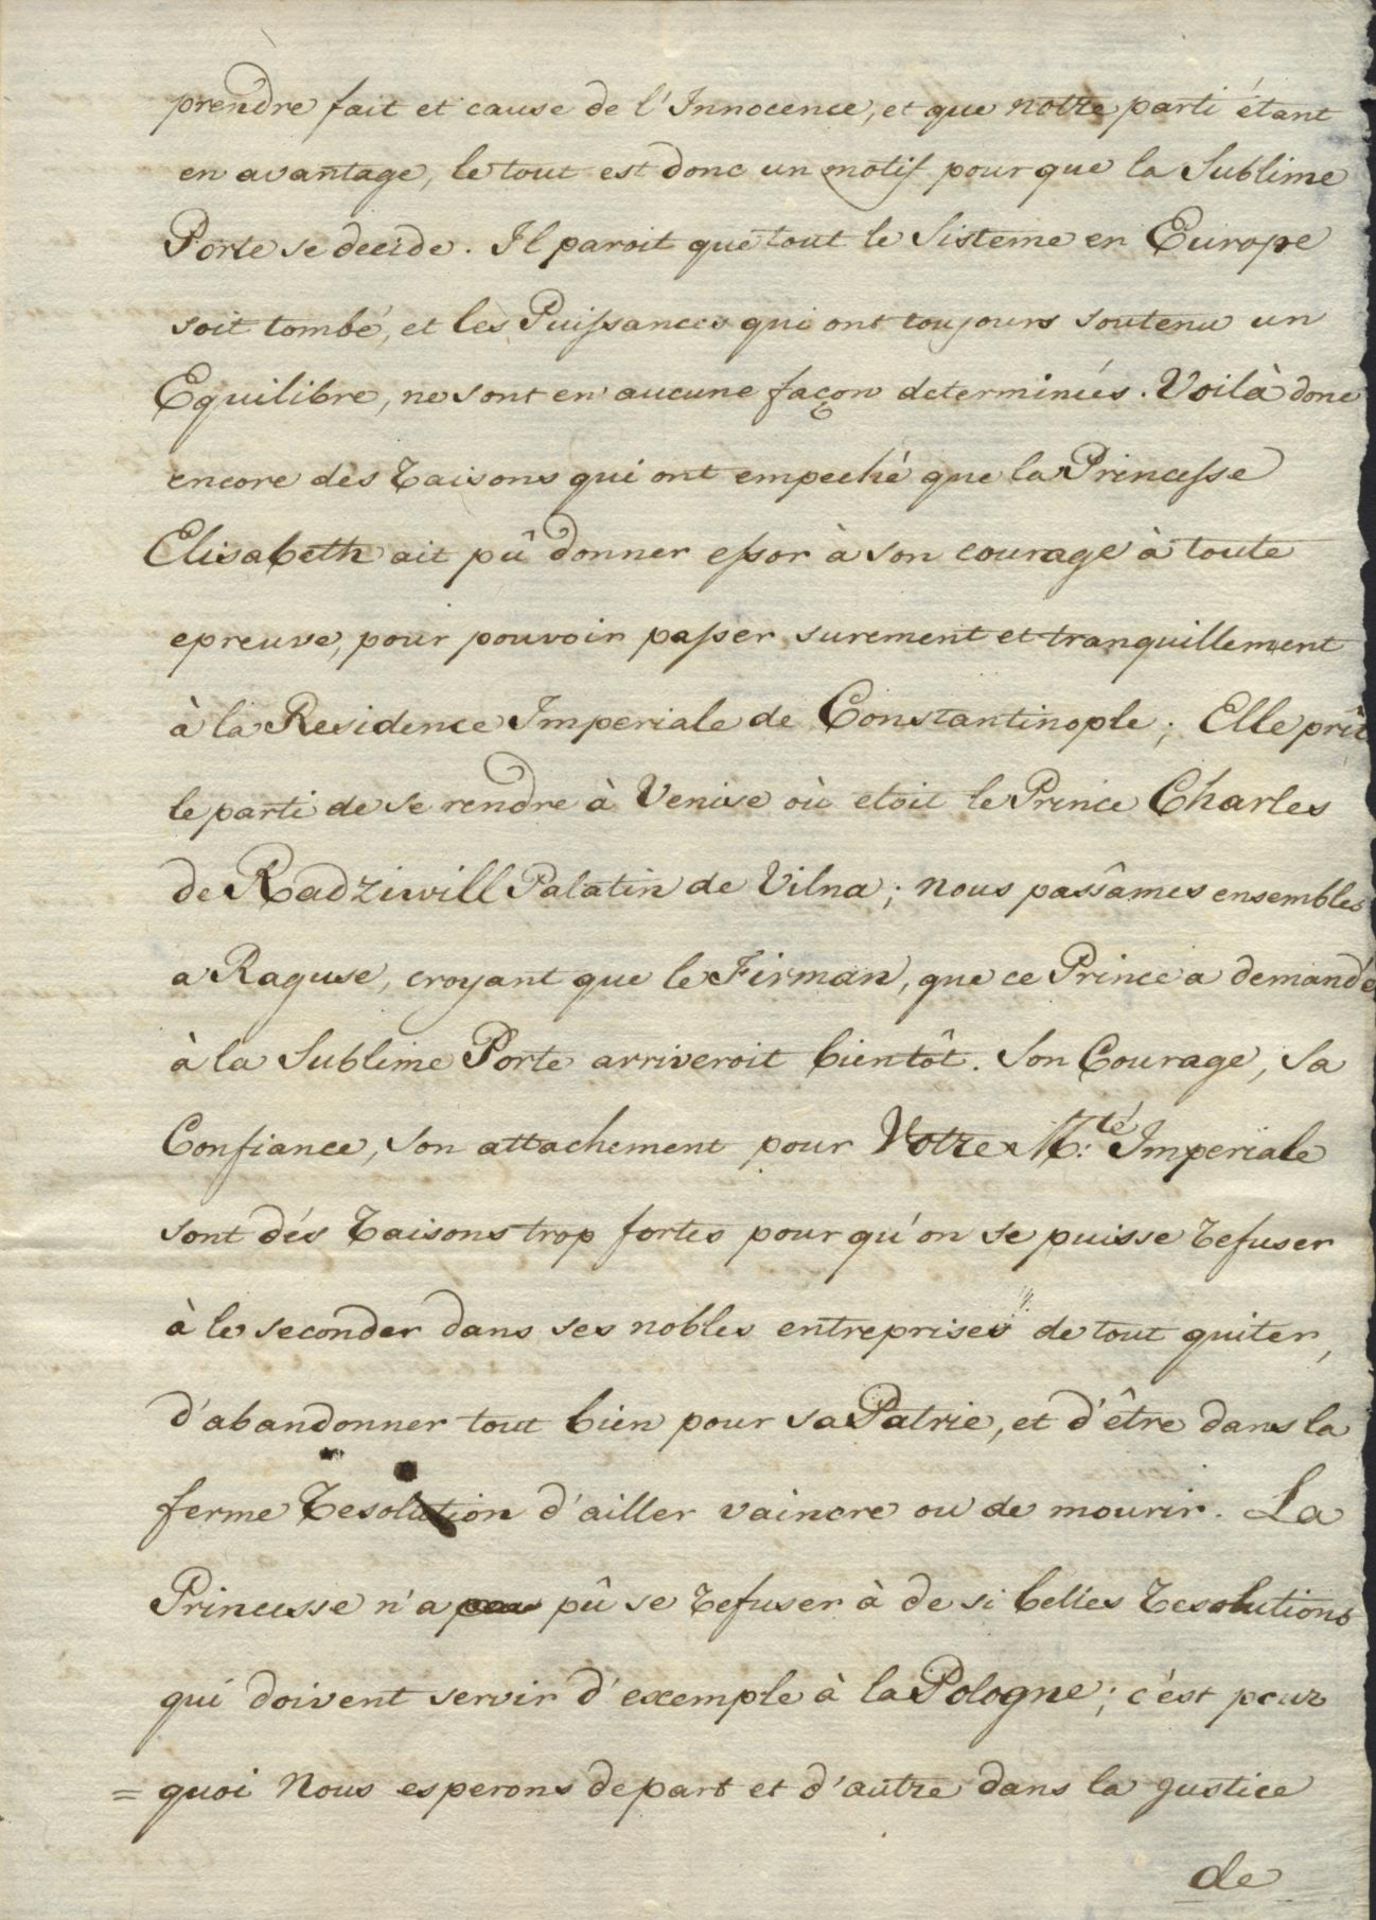 prendre fait et cause de l'Innocence, et que notre parti étant
en avantage, le tout est donc un motif pour que la Sublime
Porte se decide. Il paroit que tout le Sisteme en Europe
soit tombé, et les Puissances qui ont toujours soutenu un
Equilibre, ne sont en aucune façon determinées. Voilà donc
encore des raisons qui ont empeché que la Princesse
Elisabeth ait pû donner essor à son courage à toute
epreuve, pour pouvoir passer surement et tranquillement
à la Residence Imperiale de Constantinople; Elle prit
le parti de se rendre à Venise où etoit le Prince Charles
de Radziwill Palatin de Vilna; nous passâmes ensembles
a Raguse, croyant que le Firman, que ce Prince a demandé
à la Sublime Porte arriveroit bientôt. Son Courage, Sa
Confiance, Son attachement pour Votre M:té Imperiale
sont dés raisons trop fortes pour qu'on se puisse refuser
à le seconder dans ses nobles entreprises de tout quiter,
d'abandonner tout bien pour sa Patrie, et d'être dans la
ferme resolution d'ailler vaincre ou de mourir. La
Princesse n'a pû se refuser à de si belles resolutions
qui doivent servir d'exemple à la Pologne; c'est pour
= quoi Nous esperons de part et d'autre dans la justice
de